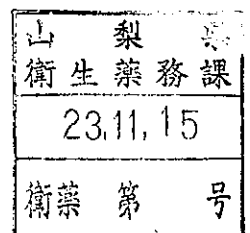 山梨県
衛生薬務課
23.11.15
衛薬第 号